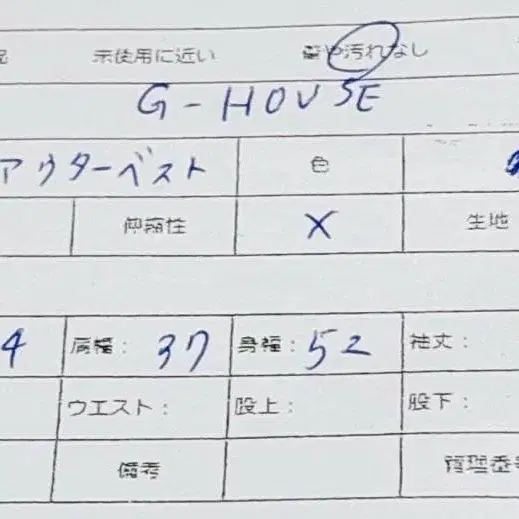 未使用に近い 傷や汚れなし
G-HOUSE
アウターベスト 色
伸縮性 X 生地
4 肩幅: 37 身幅: 52 袖丈:
ウエスト: 股上: 股下:
備考 管理番